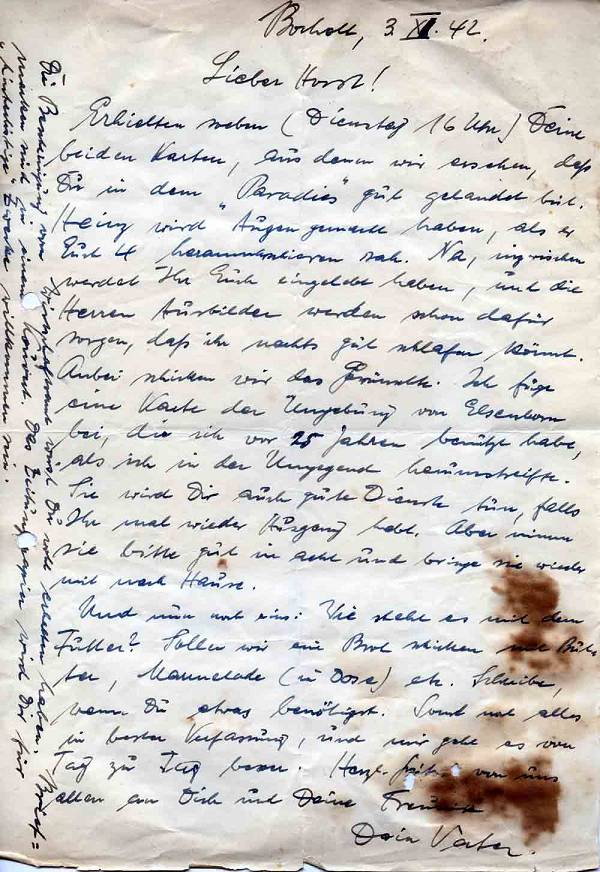 Bocholt, 3. XI. 42.
Lieber Horst!
Erhielten soeben (Dienstag 16 Uhr) Deine
beiden Karten, aus denen wir ersehen, daß
Du in dem "Paradies" gut gelandet bist.
Heinz wird Augen gemacht haben, als er
Euch 4 herummarschieren sah. Na, inzwischen
werdet Ihr Euch eingelebt haben, und die
Herren Ausbilder werden schon dafür
sorgen, daß ihr nachts gut schlafen könnt.
Anbei schicken wir das Gewünschte. Ich füge
eine Karte der Umgebung von Elsenborn
bei, die ich vor 25 Jahren benutzt habe,
als ich in der Umgegend herumstreifte.
Sie wird Dir auch gute Dienste tun, falls
Ihr mal wieder Ausgang habt. Aber nimm
sie bitte gut in acht und bringe sie wieder
mit nach Hause.
Und nun noch eins: Wie steht es mit dem
Futter? Sollen wir ein Brot schicken und But-
ter, Marmelade (in Dose) etc. Schreibe,
wenn Du etwas benötigst. Sonst noch alles
in bester Verfassung, und mir geht es von
Tag zu Tag besser. Herzl. Grüße von uns
allen an Dich und Deine Freunde
Dein Vater.
Die Bescheinigung vom Wirtschaftsamt wirst Du wohl erhalten haben. Brief=
marken und ein Kuvert. Das Zeitungspapier wird Dir für
"hinterlistige" Zwecke willkommen sein.